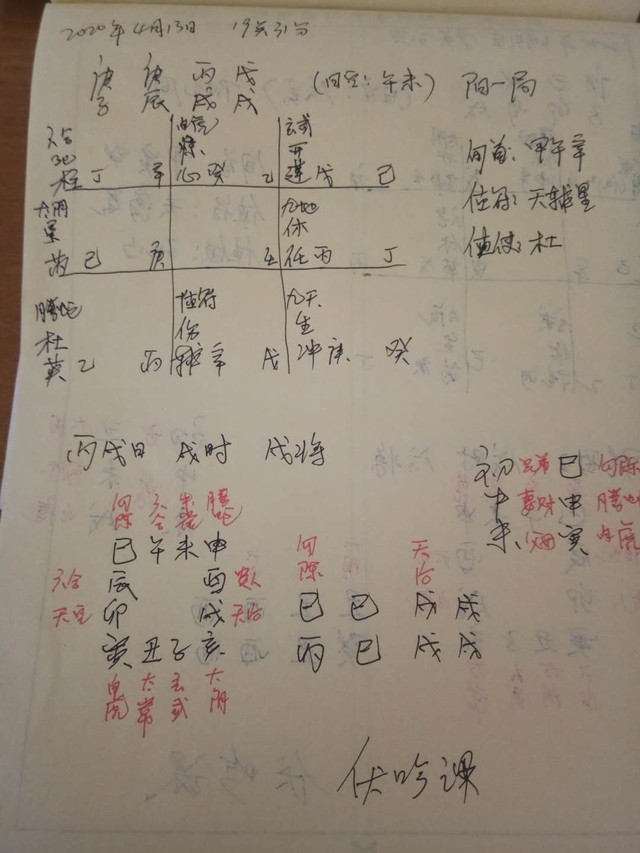 2020年4月13日 19点31分
庚 庚 丙 戊
子 辰 戌 戌 (旬空:午未) 阳一局
六合 白虎 玄武
地 惊 开
柱 丁 辛 心 癸 乙 蓬 戊 己
旬首:甲午辛
值符:天辅星
值使:杜
太阴 九地
景 休
芮 己 庚 壬 任 丙 丁
腾蛇 值符 九天
杜 伤 生
英 乙 丙 辅 辛 戊 冲 庚 癸
丙戌日 戌时 戌将
初 兄弟 巳 勾陈
中 妻财 申 腾蛇
末 父母 寅 白虎
勾陈 六合 朱雀 腾蛇
巳 午 未 申
六合 辰 酉 贵人
天空 卯 戌 天后
寅 丑 子 亥
白虎 太常 玄武 太阴
勾陈 天后
巳 巳 戌 戌
丙 巳 戌 戌
伏吟课